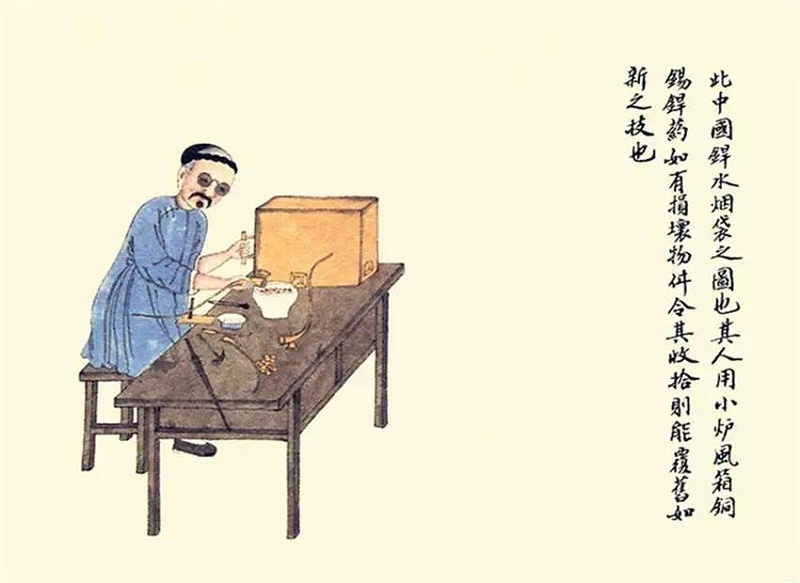 此中國銲水烟袋之圖也其人用小炉風箱銅
錫銲药如有損壞物件令其收拾則能覆舊如
新之技也